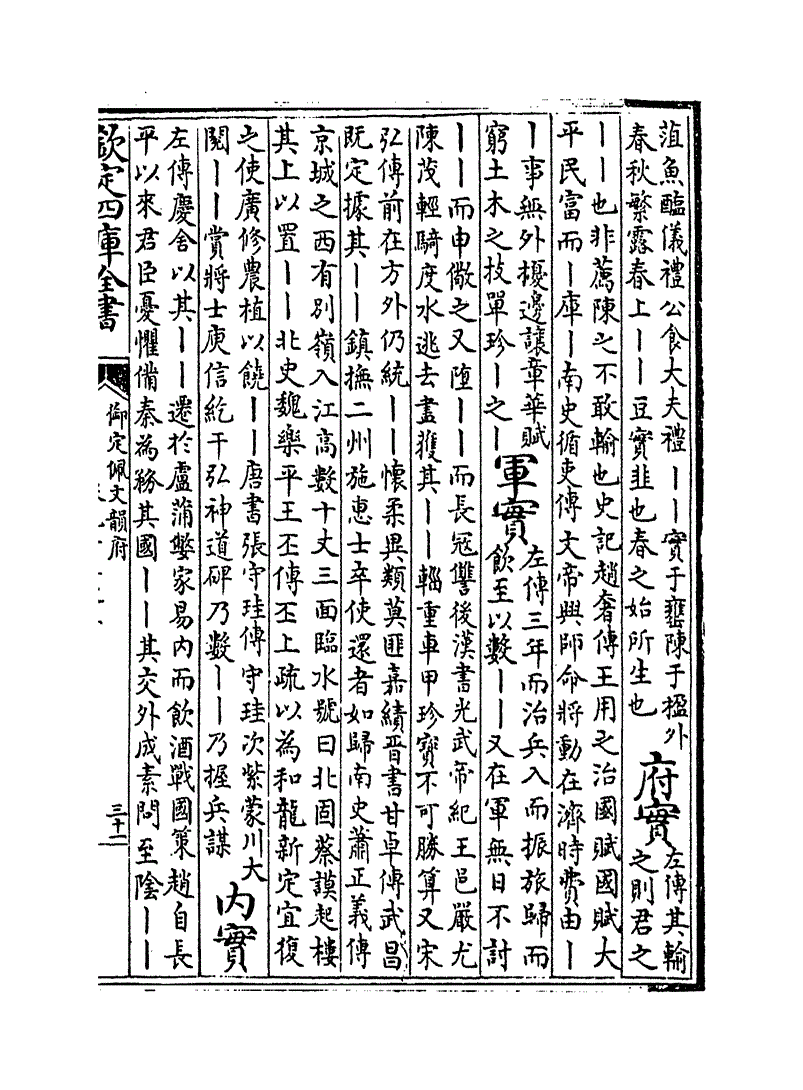 菹魚醢儀禮公食大夫禮丨丨實于罋陳于楹外
春秋繁露春上丨丨豆實韭也春之始所生也
府實
左傳其輸
之則君之
丨丨也非薦陳之不敢輸也史記趙奢傳王用之治國賦國賦大
平民富而丨庫丨南史循吏傳文帝興師命將動在濟時費由丨
丨事無外擾邊讓章華賦
窮土木之技單珍丨之丨
軍實
左傳三年而治兵入而振旅歸而
飲至以數丨丨又在軍無日不討
丨丨而申儆之又墮丨丨而長寇讎後漢書光武帝紀王邑嚴尤
陳茂輕騎度水逃去盡獲其丨丨輜重車甲珍寶不可勝算又宋
弘傳前在方外仍統丨丨懷柔異類莫匪嘉績晉書甘卓傳武昌
既定據其丨丨鎮撫二州施惠士卒使還者如歸南史蕭正義傳
京城之西有別嶺入江高數十丈三面臨水號曰北固蔡謨起樓
其上以置丨丨北史魏樂平王丕傳丕上疏以為和龍新定宜復
之使廣修農植以饒丨丨唐書張守珪傳守珪次紫蒙川大
閱丨丨賞將士庾信紇干弘神道碑乃數丨丨乃握兵謀
內實
左傳慶舍以其丨丨遷於盧蒲嫳家易內而飲酒戰國策趙自長
平以來君臣憂懼備秦為務其國丨丨其交外成素問至陰丨丨
欽定四庫全書
御定佩文韻府
三十二